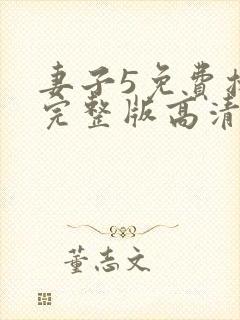 妻子5免费
完整版高清
董志文